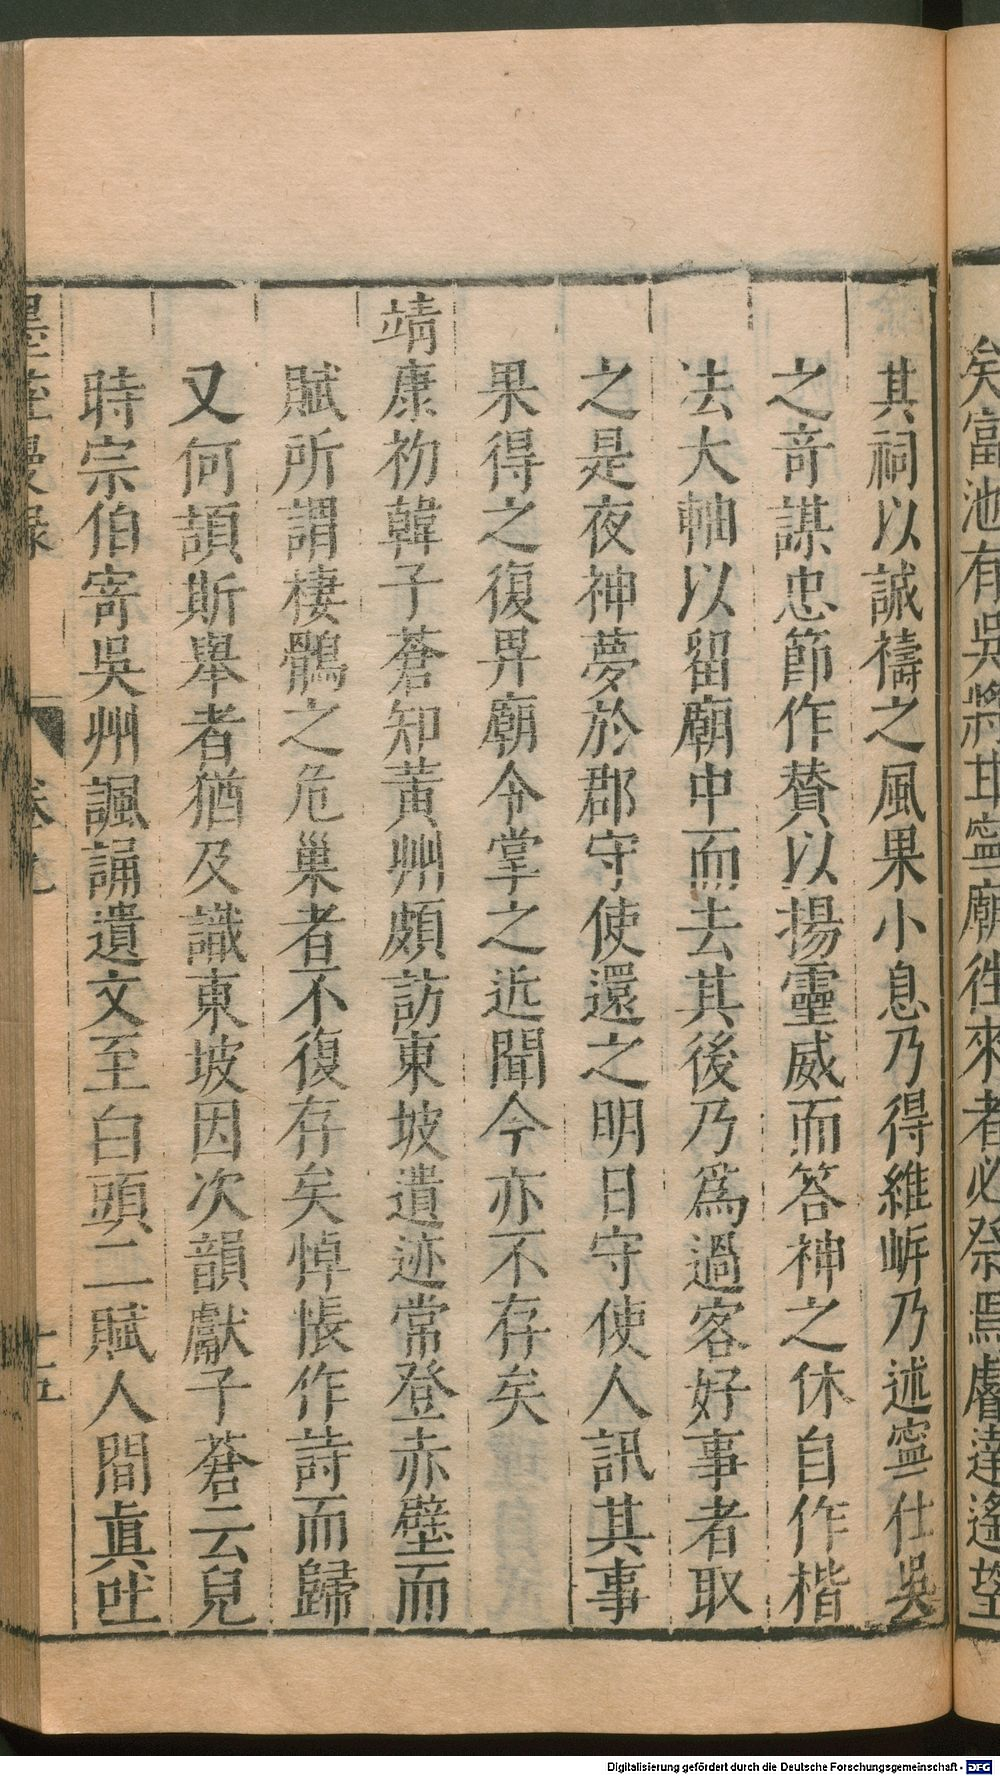 矣富池有吳將甘寧廟往來者必祭焉𢊍達遙望
其祠以誠禱之風果小息乃得維㟁乃述寧仕吳
之竒謀忠節作賛以揚靈威而答神之休自作楷
法大軸以留廟中而去其後乃爲過客好事者取
之是夜神夢於郡守使還之明日守使人訊其事
果得之復畀廟令掌之近聞今亦不存矣
靖康初韓子蒼知黃州頗訪東坡遺迹常登赤壁而
賦所謂棲鶻之危巢者不復存矣悼悵作詩而歸
又何頡斯舉者猶及識東坡因次韻獻子蒼云兒
時宗伯寄吳州諷誦遺文至白頭二賦人間眞吐
墨莊漫録
卷九
十五
Digitalisierung gefördert durch die Deutsche Forschungsgemeinschaft - DFG